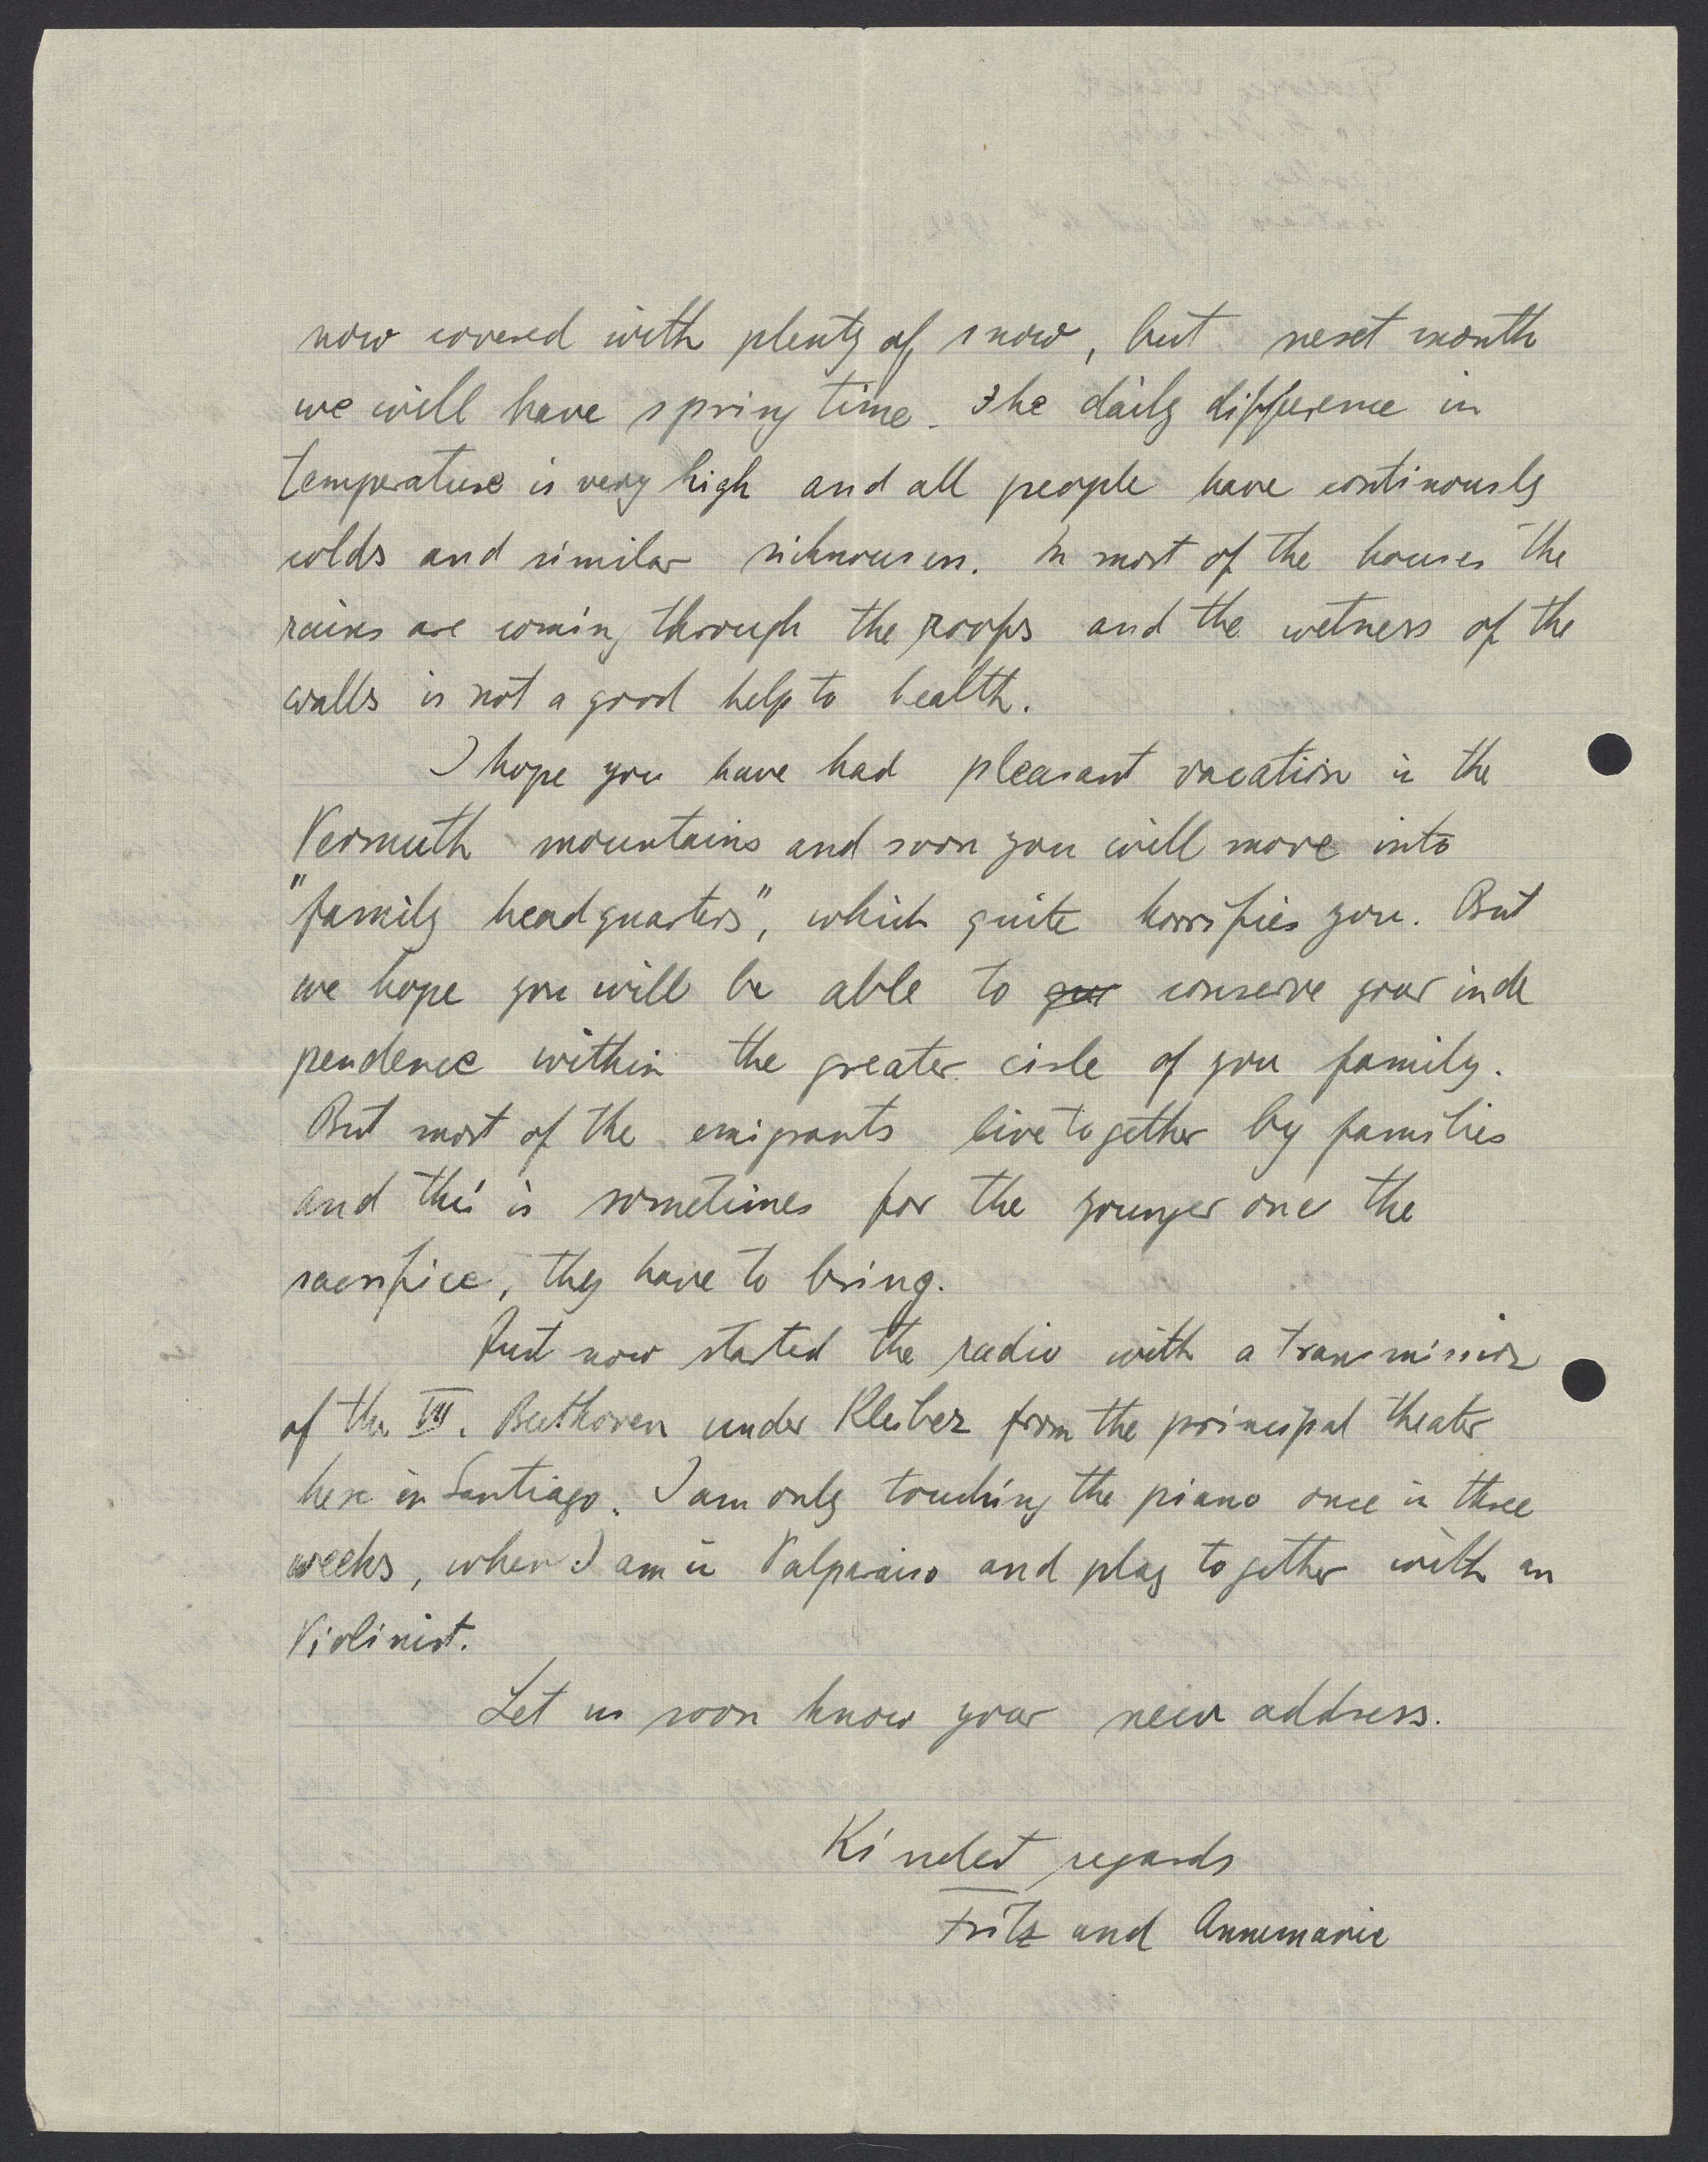 now covered with plenty of snow, but next month
we will have spring time. The daily difference in
temperature is very high and all people have continously
colds and similar sicknousses. In most of the houses the
rains are coming through the roofs and the wetness of the
walls is not a good help to health.
I hope you have had pleasant vacation in the
Vermuth mountains and soon you will move into
"family headquarters", which quite horrifies you. But
we hope you will be able to conserve your inde
pendence within the greater cirle of you family.
But most of the emigrants live together by families
and this is sometimes for the younger one the
sacrifice, they have to bring.
Just now started the radio with a transmission
of the VII. Beethoven under Kleiber from the principal theater
here in Santiago. I am only touching the piano once in three
weeks, when I am in Valparaiso and play together with an
Violinist.
Let us soon know your new address.
Kindest regards
Fritz and Annemarie